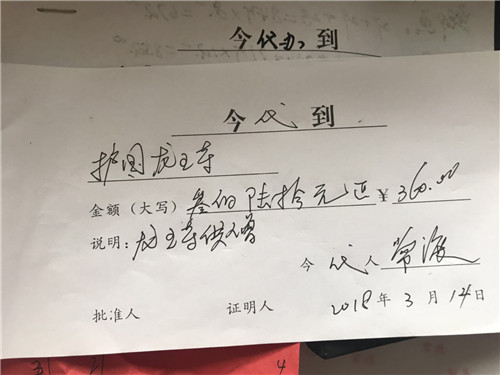 今代办到
今代到
护国龙王寺
金额（大写）叁佰陆拾元正 ¥360.00
说明：龙王寺供僧
今代人
批准人 证明人 2018年3月14日
4